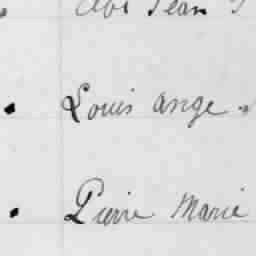 Jean
Louis ange
Pierre Marie